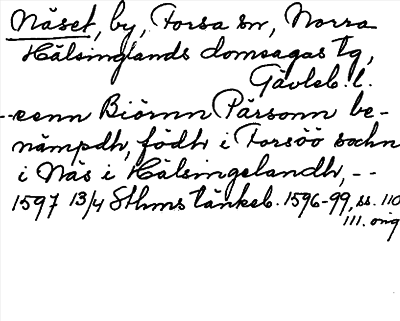 Näset, by, Forsa sn, Norra
Hälsinglands domsagas tg,
Gävleb. l.
--eenn Biömn Pärsonn be-
nämpdh, födh i Forsöö sochn
i Näs i Hälsingelandh, --
1597 13/4 Sthms tänkeb. 1596-99, ss. 110
111. orig